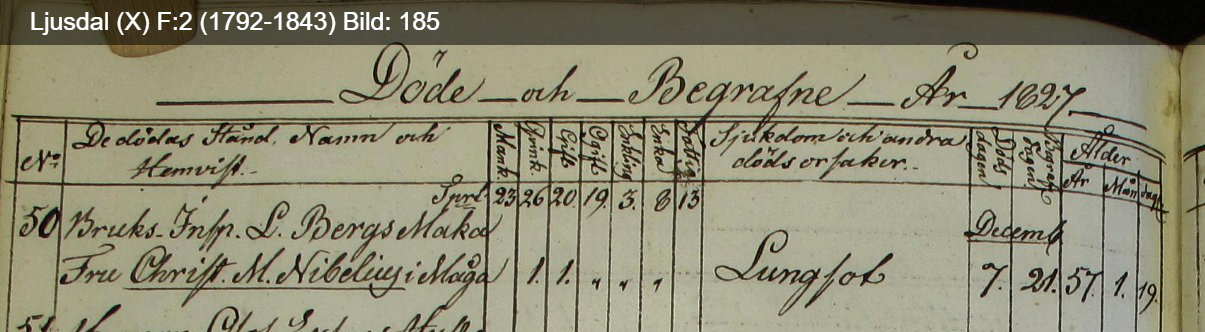 Ljusdal (X) F:2 (1792-1843) Bild: 185
Döde och Begrafne År 1827
No De dödas Stånd, Namn och Hemvist. Mank. Qvink. Gift Ogift Enkling Enka Sjukdom och andra dödsorsaker. Döds dagen Begrafn. dagen Ålder År Mån dagar
Sprt. 23 26 20. 19. 3. 8 13
50 Bruks-Insp. L. Bergs Maka Decemb
Fru Christ. M. Nibelius i Måga 1. 1. " " " Lungsot 7. 21. 57. 1. 19.
51